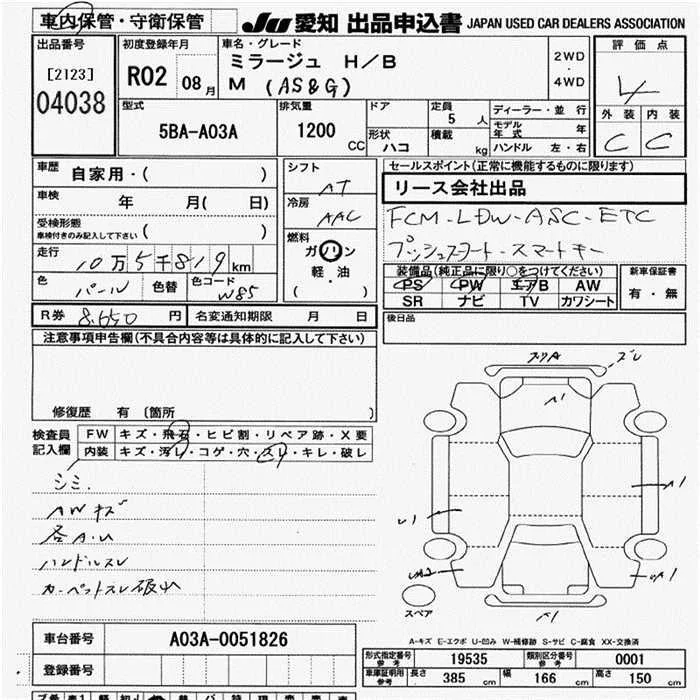 車内保管・守衛保管
JU 愛知 出品申込書 JAPAN USED CAR DEALERS ASSOCIATION
出品番号
[2123]
04038
初度登録年月
R02 08月
車名・グレード
ミラージュ H/B
M (AS&G)
2WD
・
4WD
評価点
4
外装 内装
C C
型式
5BA-A03A
排気量
1200
CC
ドア
形状
ハコ
定員
5 人
積載
kg
ディーラー・並行
モデル年式 年
ハンドル 左・右
車歴
自家用・( )
車検
年 月( 日)
受検形態
車検付きのみ記入して下さい ( )
走行
10万5千819km
色
パール
色替
色コード
W85
シフト
AT
冷房
AAC
燃料
ガソリン
軽・油
( )
セールスポイント(正常に機能するものに限ります)
リース会社出品
FCM-LDW-ASC-ETC
プッシュスタート-スマートキー
装備品(純正品に限り○をつけてください)
PS PW エアB AW
SR ナビ TV カワシート
新車保証書
有・無
R券 8,650円
名変通知期限 月 日
後日品
注意事項申告欄(不具合内容等は具体的に記入して下さい)
修復歴 有 〔箇所 〕
検査員記入欄
FW キズ・飛石・ヒビ割・リペア跡・X要
内装 キズ・汚レ・コゲ・穴・スレ・キレ・破レ
シミ.
AWキズ
各A.U
ハンドルスレ
カーペットスレ破れ
スリA
ズレ
A1
A1
U1
UA2
A1
スペア
A-キズ E-エクボ U-凹み W-補修跡 S-サビ C-腐食 XX-交換済
車台番号
A03A-0051826
登録番号
形式指定番号 参考
19535
類別区分番号 参考
0001
車庫証明用 参考
長さ 385 cm
幅 166 cm
高さ 150 cm